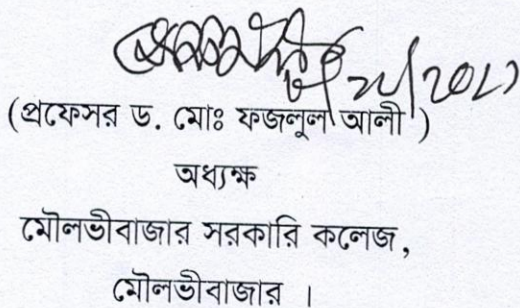 (প্রফেসর ড. মোঃ ফজলুল আলী)
অধ্যক্ষ
মৌলভীবাজার সরকারি কলেজ,
মৌলভীবাজার ।